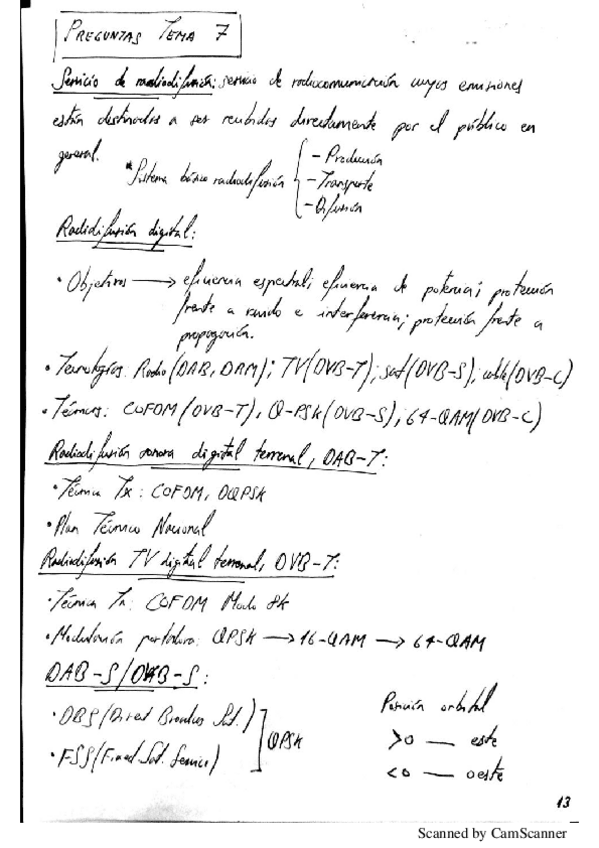 PREGUNTAS TEMA 7
Servicio de radiodifusión: servicio de radiocomunicación cuyas emisiones
están destinadas a ser recibidas directamente por el público en
general.
*Sistema básico radiodifusión
- Producción
- Transporte
- Difusión
Radiodifusión digital:
• Objetivos → eficiencia espectral; eficiencia de potencia; protección
frente a ruido e interferencia; protección frente a
propagación.
• Tecnologías: Radio (DAB, DRM); TV (DVB-T); sat (DVB-S); cable (DVB-C)
• Técnicas: COFDM (DVB-T), Q-PSK (DVB-S), 64-QAM (DVB-C)
Radiodifusión sonora digital terrenal, DAB-T:
• Técnica Tx: COFDM, DQPSK
• Plan Técnico Nacional
Radiodifusión TV digital terrenal, DVB-T:
• Técnica Tx: COFDM Modo 8k
• Modulación portadora: QPSK → 16-QAM → 64-QAM
DAB-S/DVB-S:
• DBS (Direct Broadcas Sat.)
• FSS (Fixed Sat. Service)
QPSK
Posición orbital
>0 — este
<0 — oeste
13
Scanned by CamScanner